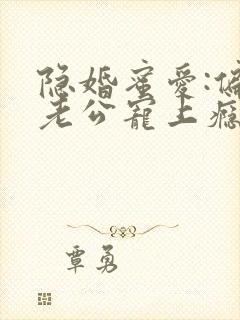 隐婚蜜爱:偏
老公宠上瘾
覃勇